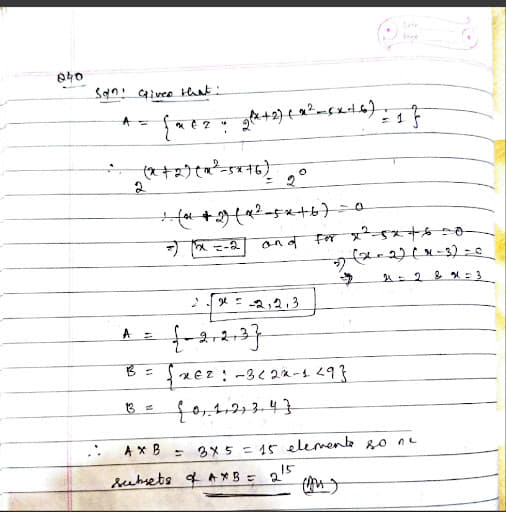 Date
Page
Q40
Soln: Given that:
A = { x ∈ z : 2^(x+2)(x²-5x+6) = 1 }
∴ 2^(x+2)(x²-5x+6) = 2⁰
∴ (x+2)(x²-5x+6) = 0
⇒ x = -2 and for x²-5x+6=0
⇒ (x-2)(x-3)=0
⇒ x = 2 & x = 3
∴ x = -2,2,3
A = {-2,2,3}
B = {x∈z : -3<2x-1<9}
B = {0,1,2,3,4}
∴ A×B = 3×5 = 15 elements so
subsets of A×B = 2¹⁵ (An)